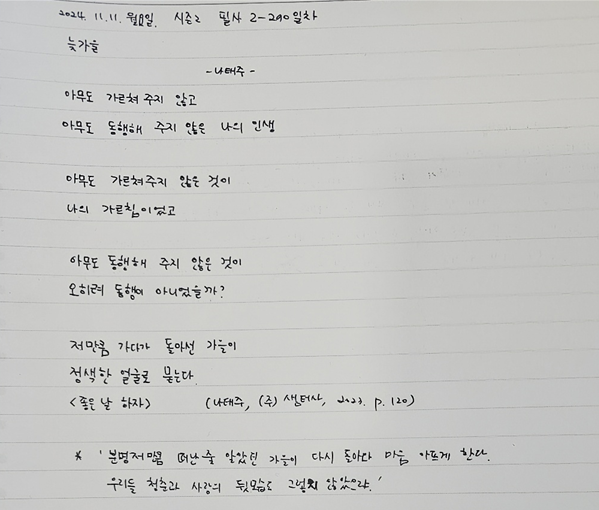 2024. 11. 11. 월요일. 시즌2 필사 2-290일차
늦가을
-나태주-
아무도 가르쳐 주지 않고
아무도 동행해 주지 않은 나의 인생
아무도 가르쳐주지 않은 것이
나의 가르침이었고
아무도 동행해 주지 않은 것이
오히려 동행이 아니었을까?
저만큼 가다가 돌아선 가을이
정색한 얼굴로 묻는다.
<좋은 날 하자> (나태주, (주) 샘터사, 2023. p. 120)
* '분명 저만큼 떠난 줄 알았던 가을이 다시 돌아와 마음 아프게 한다.
우리들 청춘과 사랑의 뒷모습도 그렇지 않았으랴.'